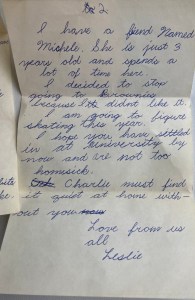 2
I have a friend Named
Michele. She is just 3
years old and spends a
lot of time here.
I decided to stop
going to Brownies
because I didnt like it.
I am going to figure
skating this year.
I hope you have settled
in at University by
now and are not too
homsick.
Charlie must find
it quiet at home with-
out you
Love from us
all
Leslie